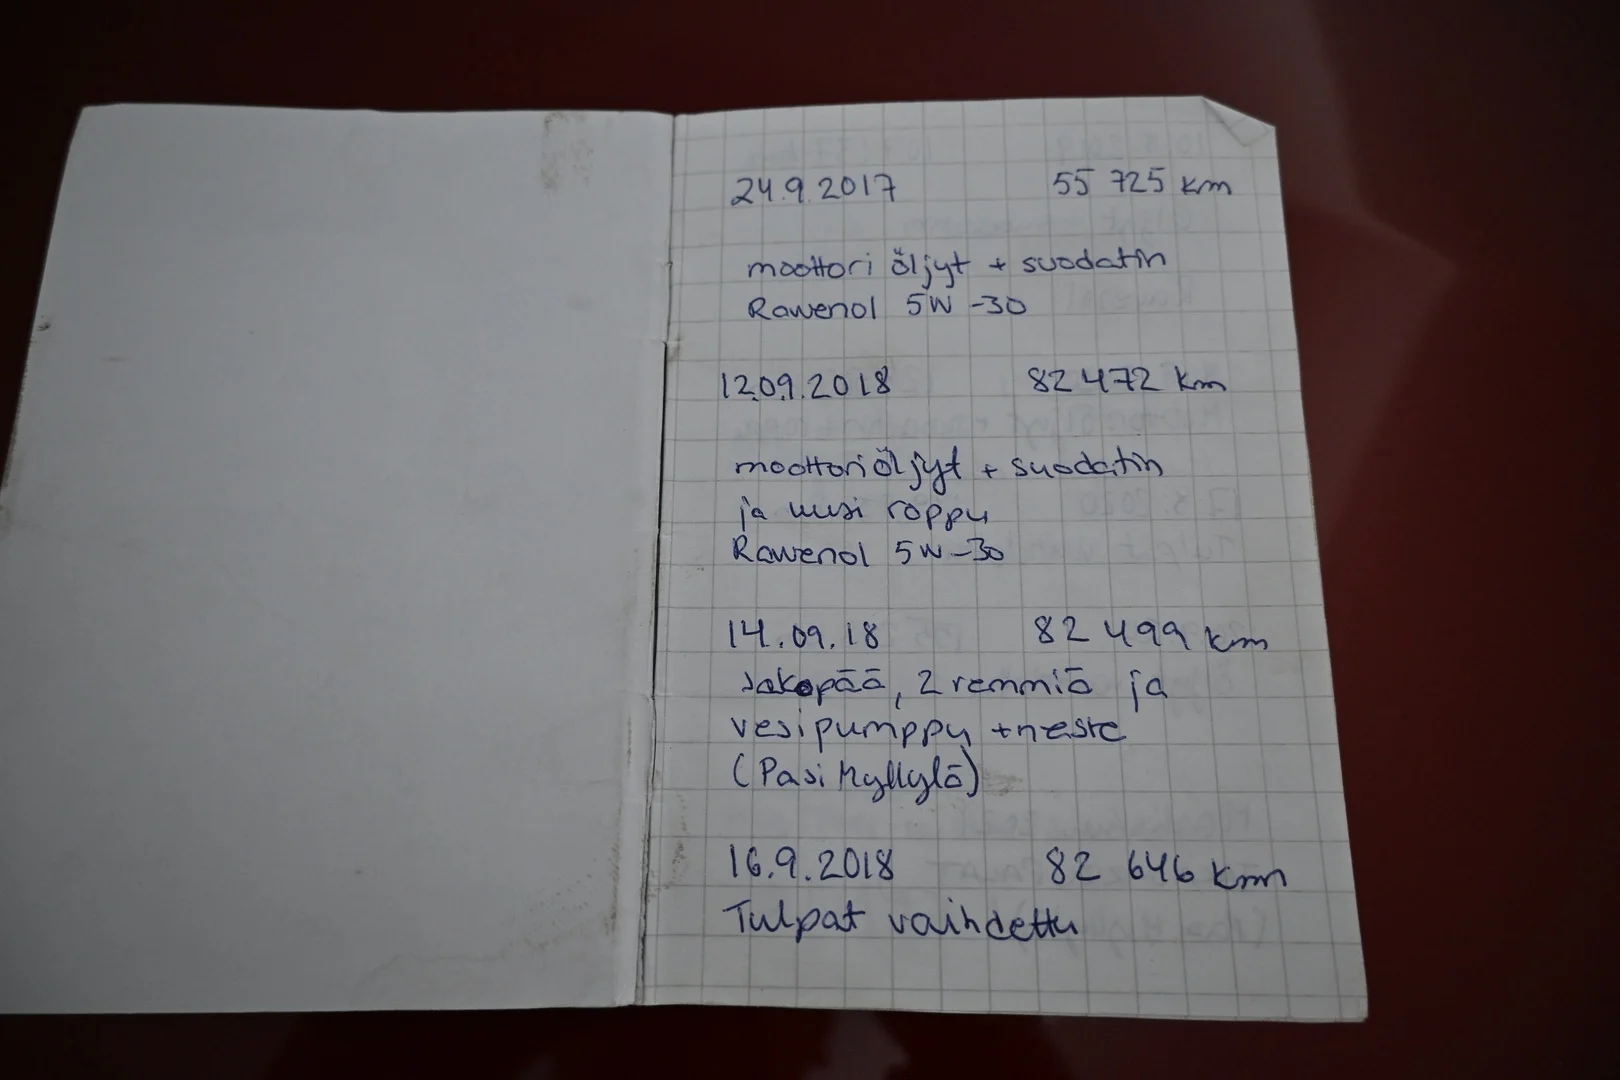 24.9.2017 55 725 km
moottori öljyt + suodatin
Rawenol 5W-30
12.09.2018 82 472 km
moottoriöljyt + suodatin
ja uusi röppu
Rawenol 5W-30
14.09.18 82 499 km
Jakopää, 2 remmiä ja
vesipumppu + neste
(Pasi Myllylä)
16.9.2018 82 646 km
Tulpat vaihdettu